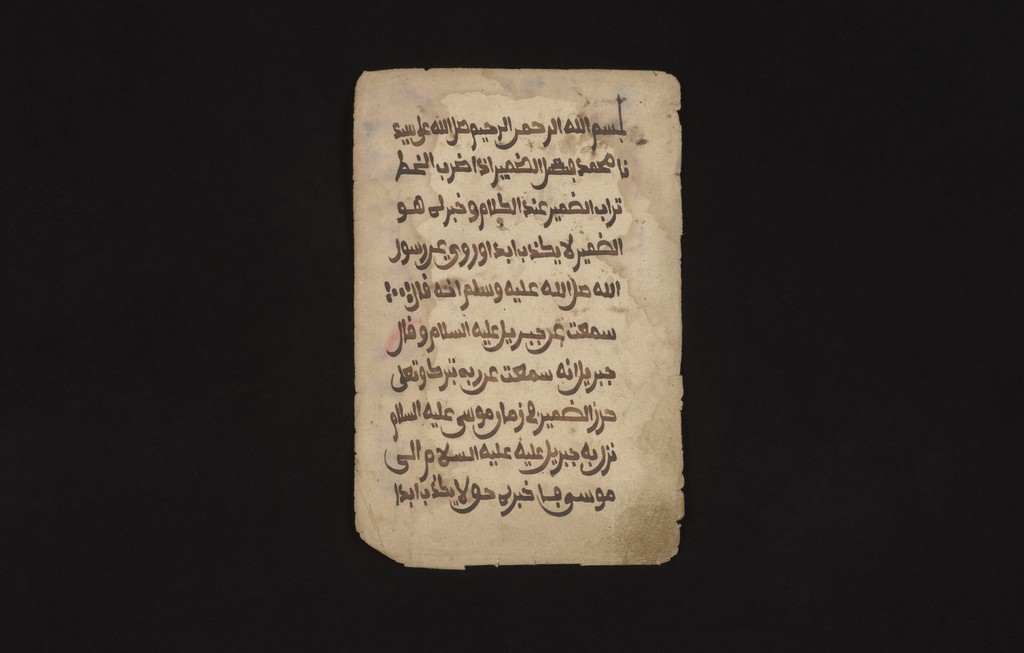 بسم الله الرحمن الرحيم صل الله على سيد
نا محمد بصل الضمير اذا ضرب الخط
تراب الضمير عند الكلام وخبرلى هو
الضمير لا يكذب ابدا وروى عن رسول
الله صل الله عليه وسلم انه قال
سمعت عن جبريل عليه السلام وقال
جبريل انه سمعت عن ربه تبرك وتعلى
حرز الضمير فى زمان موسى عليه السلام
نزل به جبريل عليه عليه السلام الى
موسى خبرلى حو لا يكذب ابدا